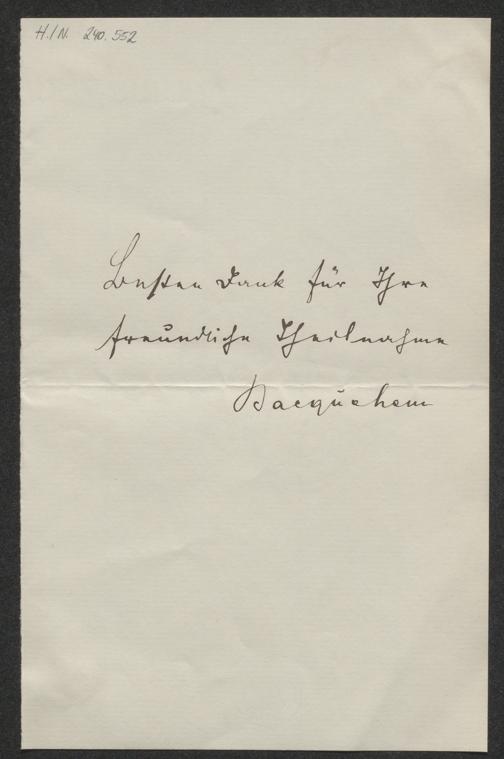 H.I.N. 240.552
Besten Dank für Ihre
freundliche Theilnahme
Bacquehem